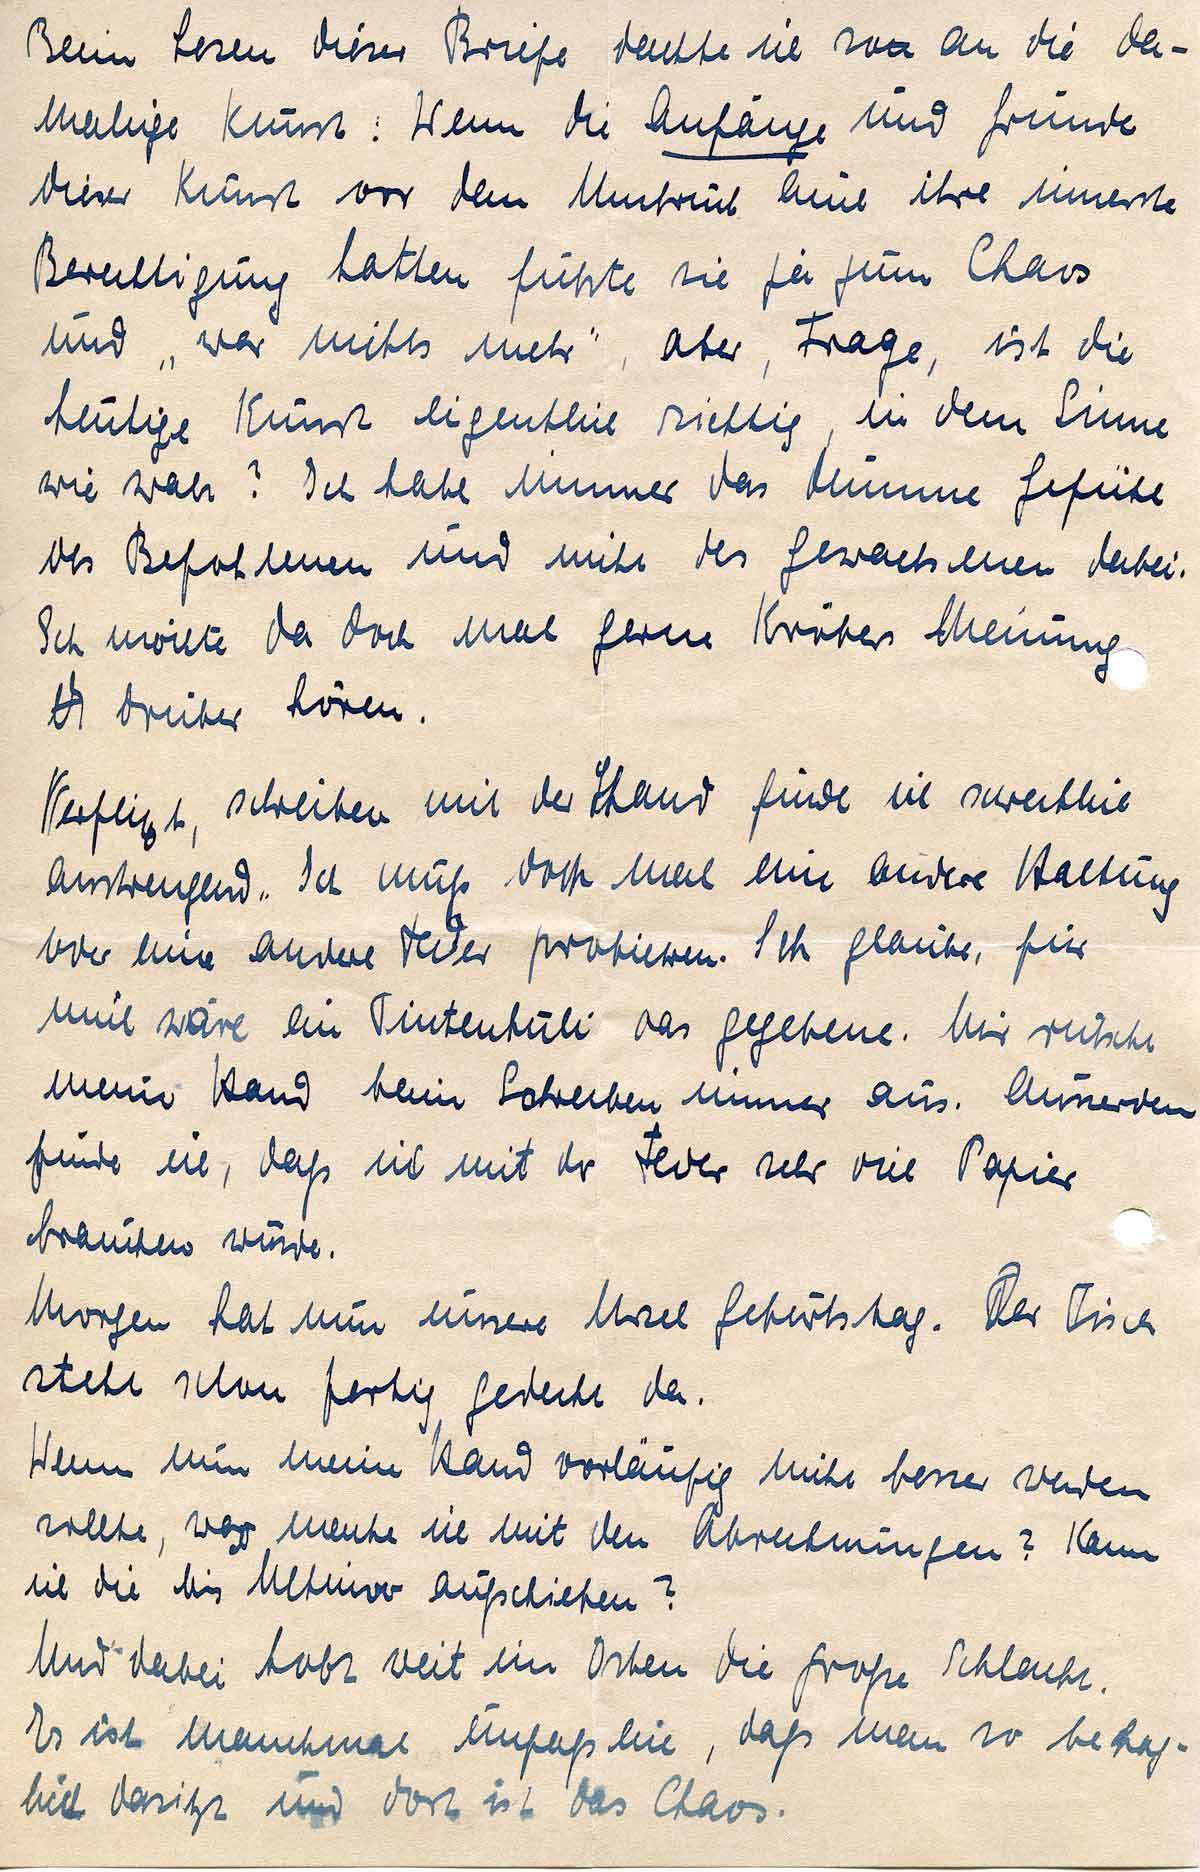 Beim Lesen dieser Briefe dachte ich so an die da-
malige Kunst: Wenn die Anfänge und Gründe
dieser Kunst vor dem Umbruch auch ihre innerste
Berechtigung hatten führte sie ja zum Chaos
und „war nichts mehr", aber, Frage, ist die
heutige Kunst eigentlich richtig, in dem Sinne
wie wahr? Ich habe immer das dumme Gefühl
des Befohlenen und nicht des gewachsenen dabei.
Ich möchte da doch mal gerne Kröbers Meinung
drüber hören.
Verflixt, schreiben mit der Hand finde ich schrecklich
anstrengend. Ich muß doch mal eine andere Haltung
oder eine andere Feder probieren. Ich glaube, für
mich wäre ein Tintenkuli das gegebene. Mir rutscht
meine Hand beim Schreiben immer aus. Ausserdem
finde ich, daß ich mit der Feder sehr viel Papier
brauchen würde.
Morgen hat nun unsere Ursel Geburtstag. Der Tisch
steht schon fertig gedeckt da.
Wenn nun meine Hand vorläufig nicht besser werden
sollte, was mache ich mit den Abrechnungen? Kann
ich die bis Ultimo aufschieben?
Und dabei tobt weit im Osten die große Schlacht.
Es ist manchmal unfaßlich, daß man so behag-
lich dasitzt und dort ist das Chaos.